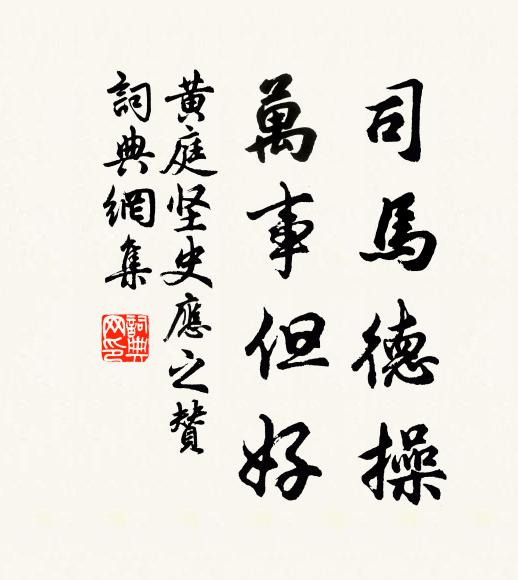 司馬德操
萬事但好
黃庭坚史應之贊
詞典網集
詞典
网印